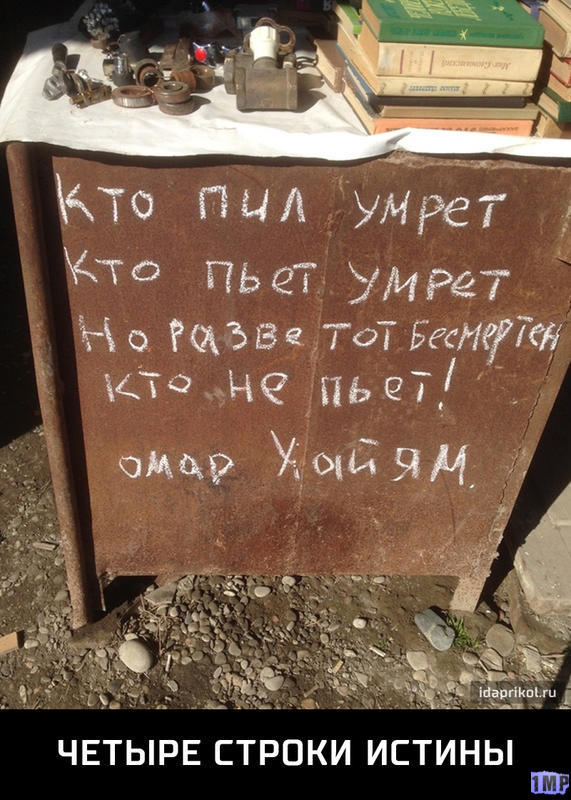 кто пил умрет
кто пьет умрет
Но разве тот бесмертен
кто не пьет!
омар Хайям.
idaprikol.ru
ЧЕТЫРЕ СТРОКИ ИСТИНЫ
1МР